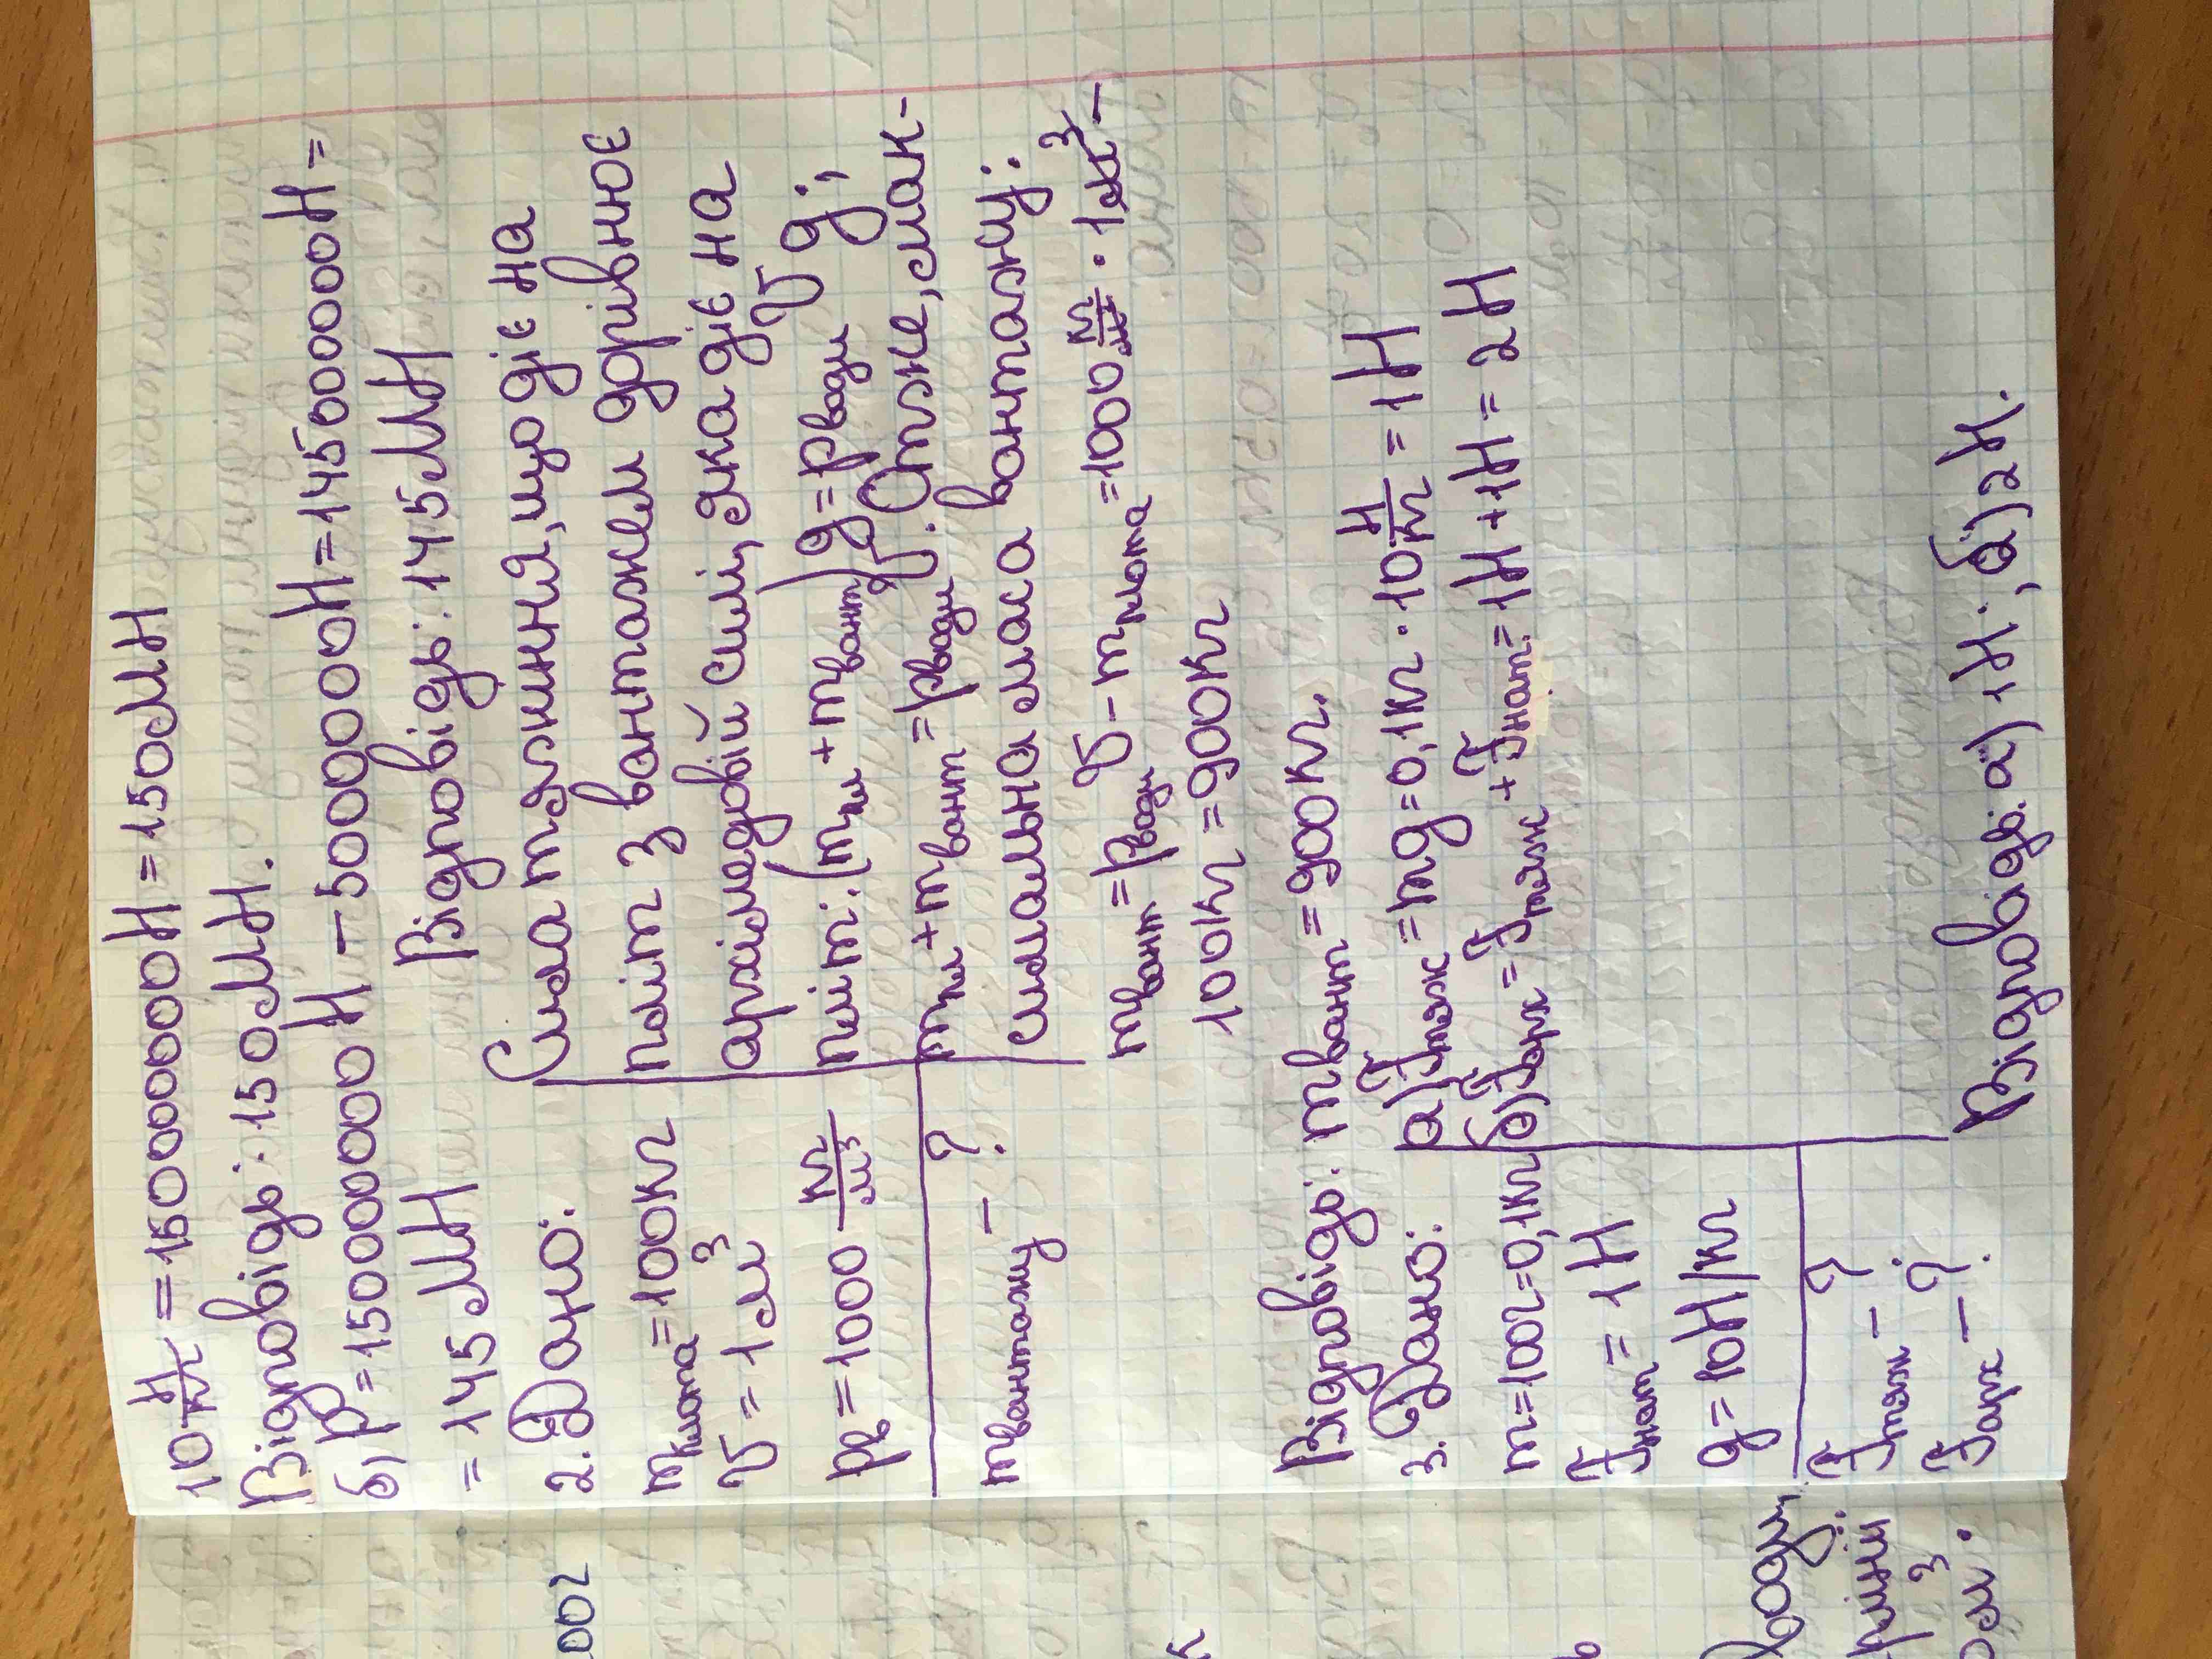 10 Н/кг = 150000000 Н = 150 МН
Відповідь: 150 МН.
б) P = 150000000 Н - 5000000 Н = 145000000 Н =
= 145 МН
Відповідь: 145 МН
2. Дано:
mплота = 100 кг
V = 1 м³
ρв = 1000 кг/м³
mвантажу - ?
Сила тяжіння, що діє на
пліт з вантажем дорівнює
архімедовій силі, яка діє на
пліт: (mпл + mвант)g = ρводи V g;
mпл + mвант = ρводи V. Отже, мак-
симальна маса вантажу:
mвант = ρводи V - mплота = 1000 кг/м³ · 1 м³ -
100 кг = 900 кг
Відповідь: mвант = 900 кг.
3. Дано:
m = 100 г = 0,1 кг
Fнат = 1 Н
g = 10 Н/кг
Fтяж - ?
Fарх - ?
а) Fтяж = mg = 0,1 кг · 10 Н/кг = 1 Н
б) Fарх = Fтяж + Fнат = 1 Н + 1 Н = 2 Н
Відповідь: а) 1 Н.; б) 2 Н.